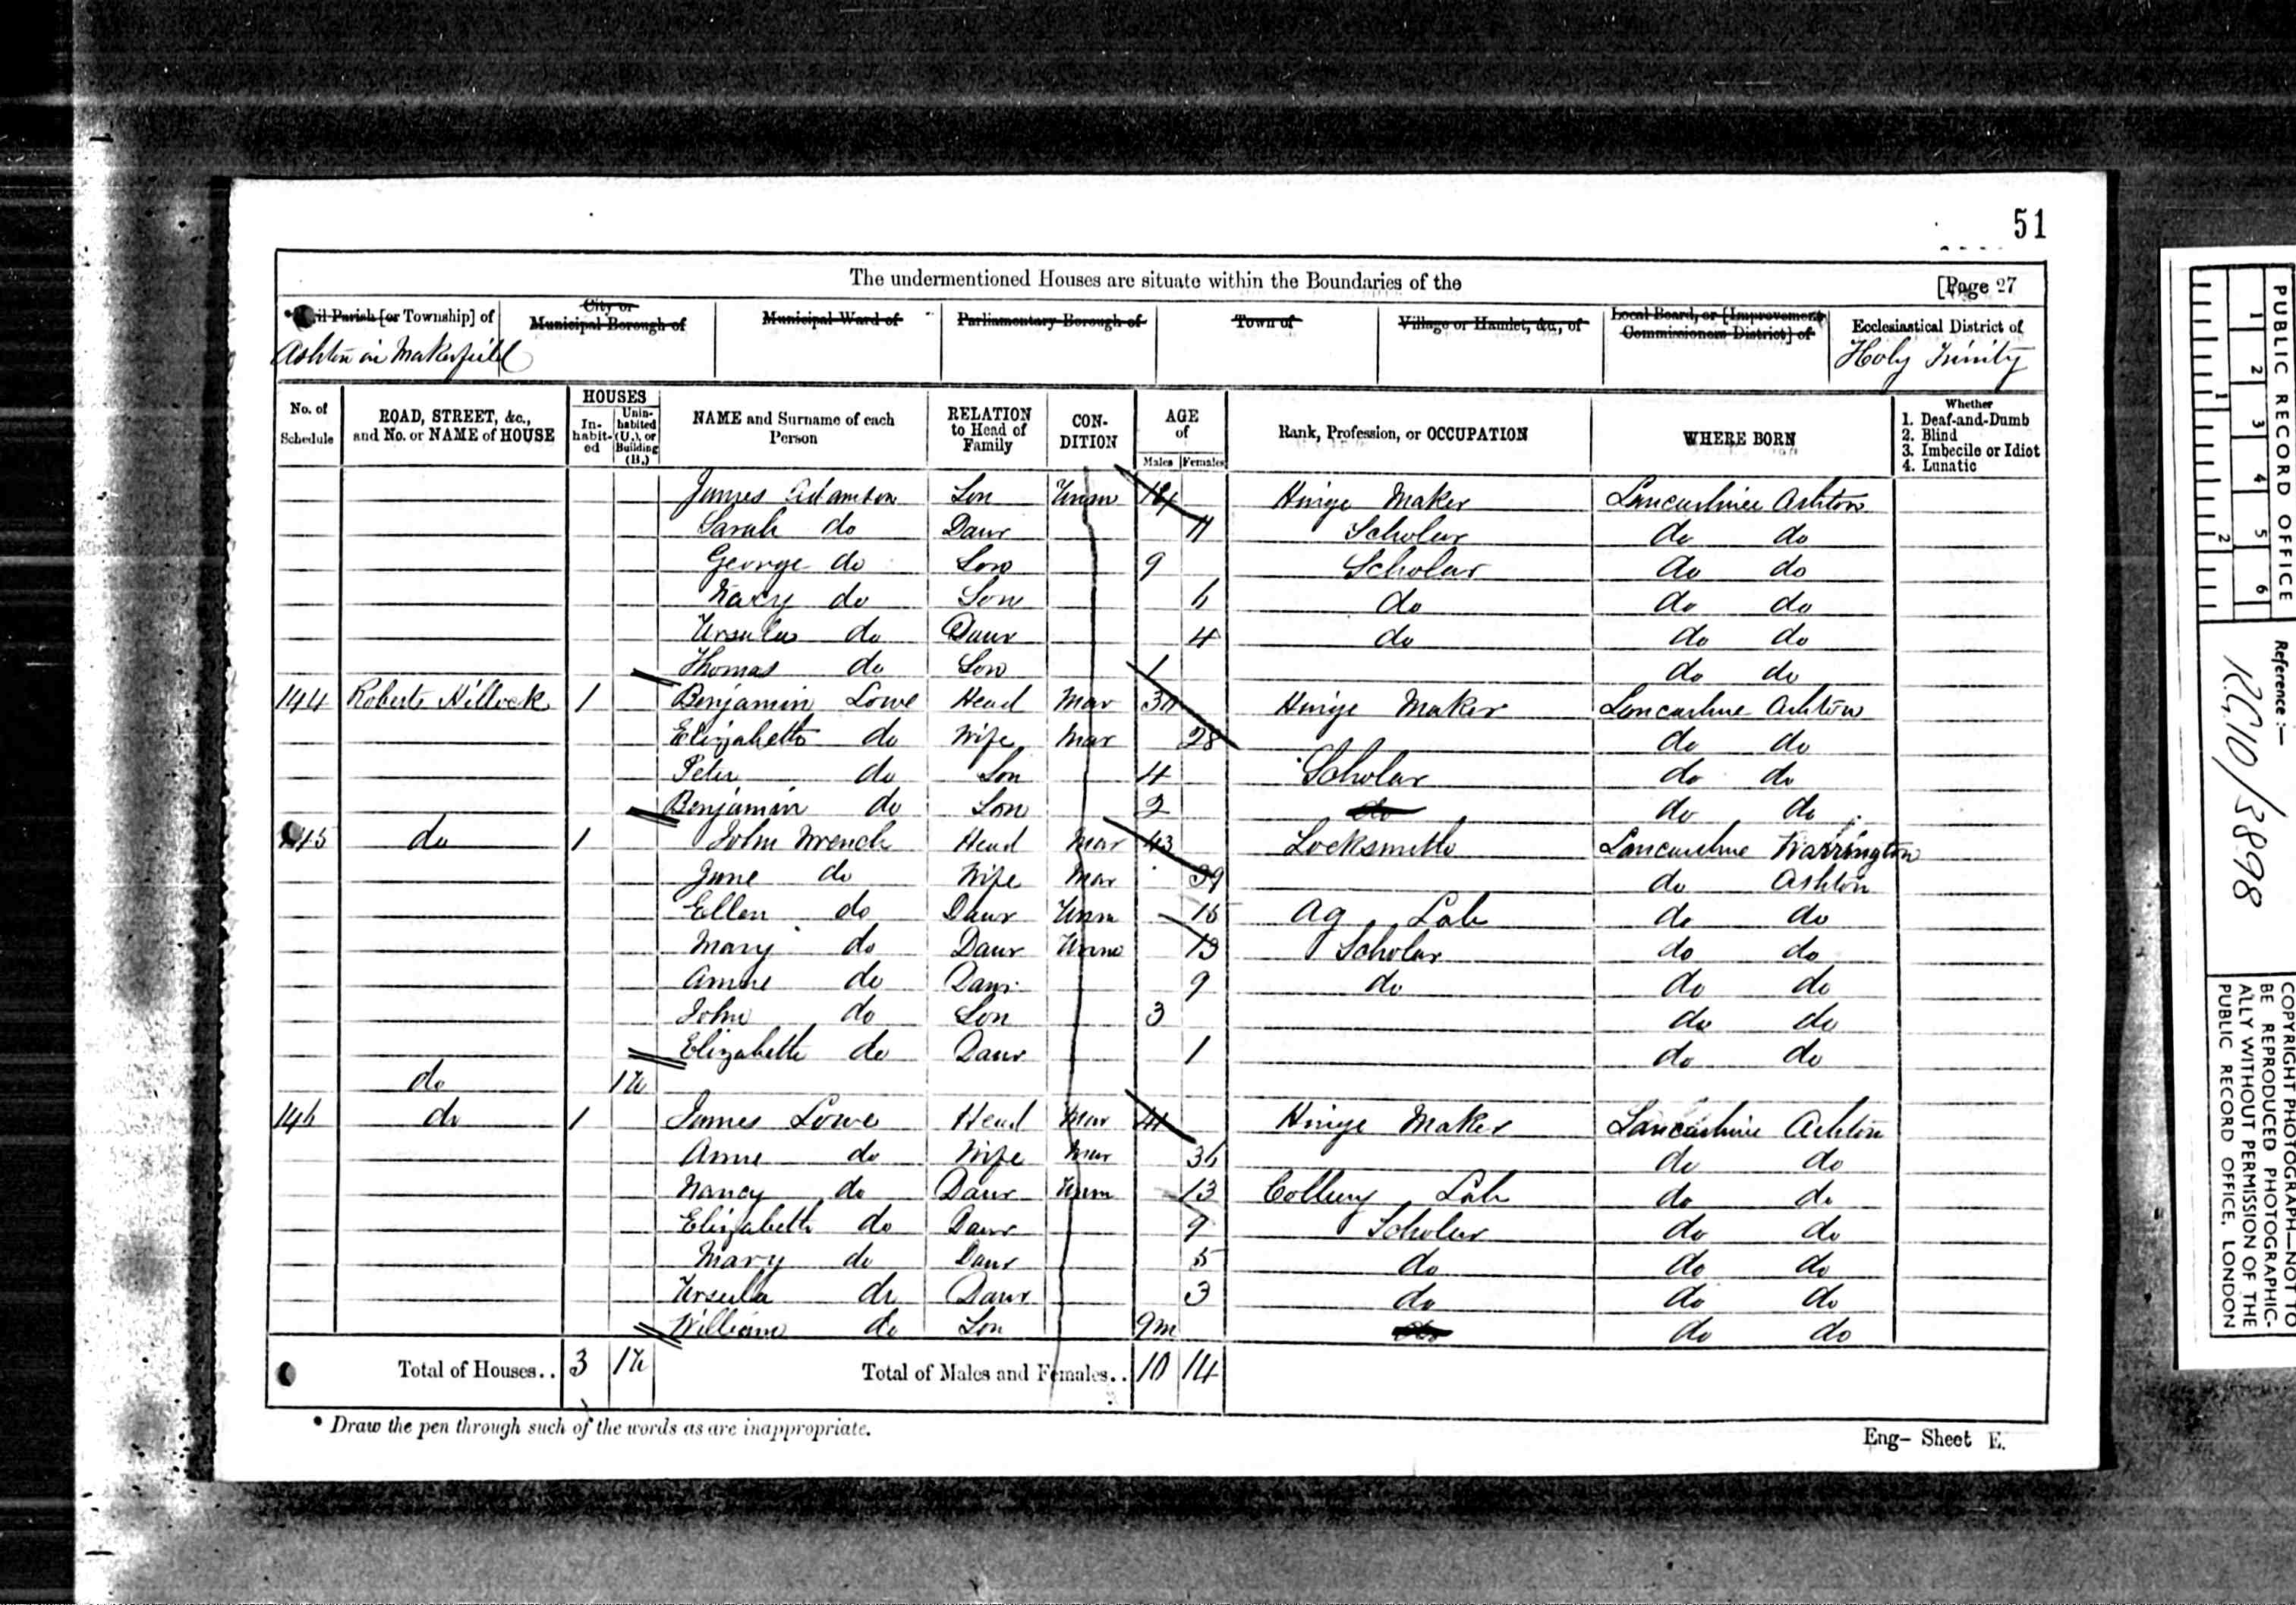 51
The undermentioned Houses are situate within the Boundaries of the [Page 27
Parish [or Township] of
Ashton in Makerfield
City or Municipal Borough of
Municipal Ward of
Parliamentary Borough of
Town of
Village or Hamlet, &c., of
Local Board, or [Improvement Commissioners District] of
Ecclesiastical District of
Holy Trinity
No. of Schedule
ROAD, STREET, &c., and No. or NAME of HOUSE
HOUSES
In-habit-ed
Unin-habited (U.), or Building (B.)
NAME and Surname of each Person
RELATION to Head of Family
CON-DITION
AGE of
Males Females
Rank, Profession, or OCCUPATION
WHERE BORN
Whether
1. Deaf-and-Dumb
2. Blind
3. Imbecile or Idiot
4. Lunatic
James Adamson Son Unm Hinge Maker Lancashire Ashton
Sarah do Daur 11 Scholar do do
George do Son 9 Scholar do do
do Son 6 do do do
Ursula do Daur 4 do do do
Thomas do Son 1 do do
144 Roberts Hillock 1 Benjamin Lowe Head Mar Hinge Maker Lancashire Ashton
Elizabeth do Wife Mar 28 do do
Peter do Son 4 Scholar do do
Benjamin do Son 2 do do do
145 do 1 John Wrench Head Mar 43 Locksmith Lancashire Warrington
Jane do Wife Mar 39 do Ashton
Ellen do Daur Unm Ag Lab do do
Mary do Daur Unm 13 Scholar do do
Anne do Daur 9 do do do
John do Son 3 do do
Elizabeth do Daur 1 do do
do 1U
146 do 1 James Lowe Head Mar 41 Hinge Maker Lancashire Ashton
Anne do Wife Mar 36 do do
Nancy do Daur Unm 13 Colliery Lab do do
Elizabeth do Daur 9 Scholar do do
Mary do Daur 5 do do do
Ursula do Daur 3 do do do
William do Son 9m do do
Total of Houses.. 3 1U Total of Males and Females.. 10 14
* Draw the pen through such of the words as are inappropriate.
Eng- Sheet E.
PUBLIC RECORD OFFICE
1 2 3 4 5 6
1 2
Reference :-
RG10/3898
COPYRIGHT PHOTOGRAPH—NOT TO
BE REPRODUCED PHOTOGRAPHIC-
ALLY WITHOUT PERMISSION OF THE
PUBLIC RECORD OFFICE, LONDON